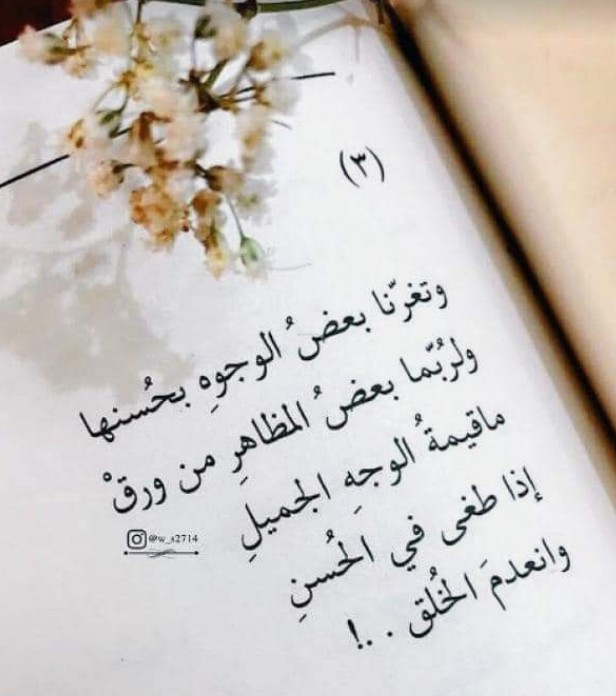 (٣)
وتغرّنا بعضُ الوجوهِ بحُسنها
ولرُبّما بعضُ المظاهرِ من ورقْ
ماقيمةُ الوجهِ الجميلِ
إذا طغى في الحُسنِ
وانعدمَ الخُلق . . .!
@w_s2714